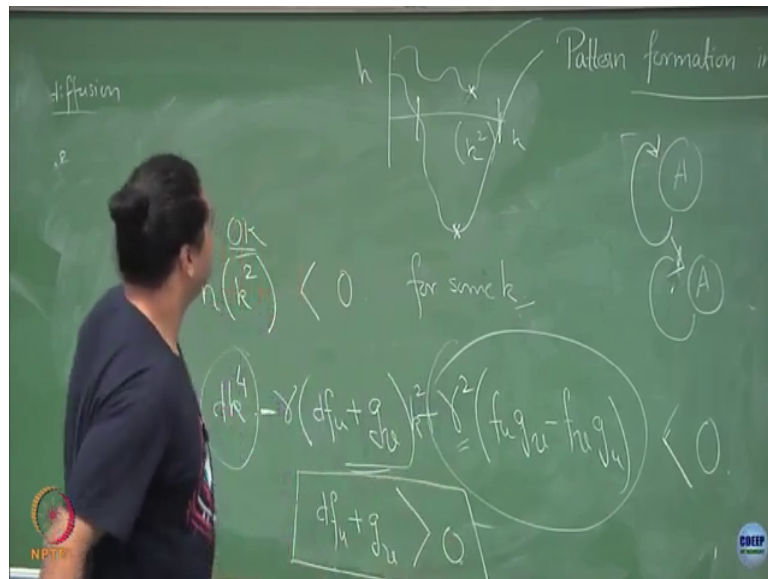 diffusion
Pattern formation in
h
(k²) k
A
A
OK
h(k²) < 0 for some k
dk⁴ - γ(df_u + g_v)k² + γ²(f_u g_v - f_v g_u) < 0.
df_u + g_v > 0
NPTEL
CDEEP